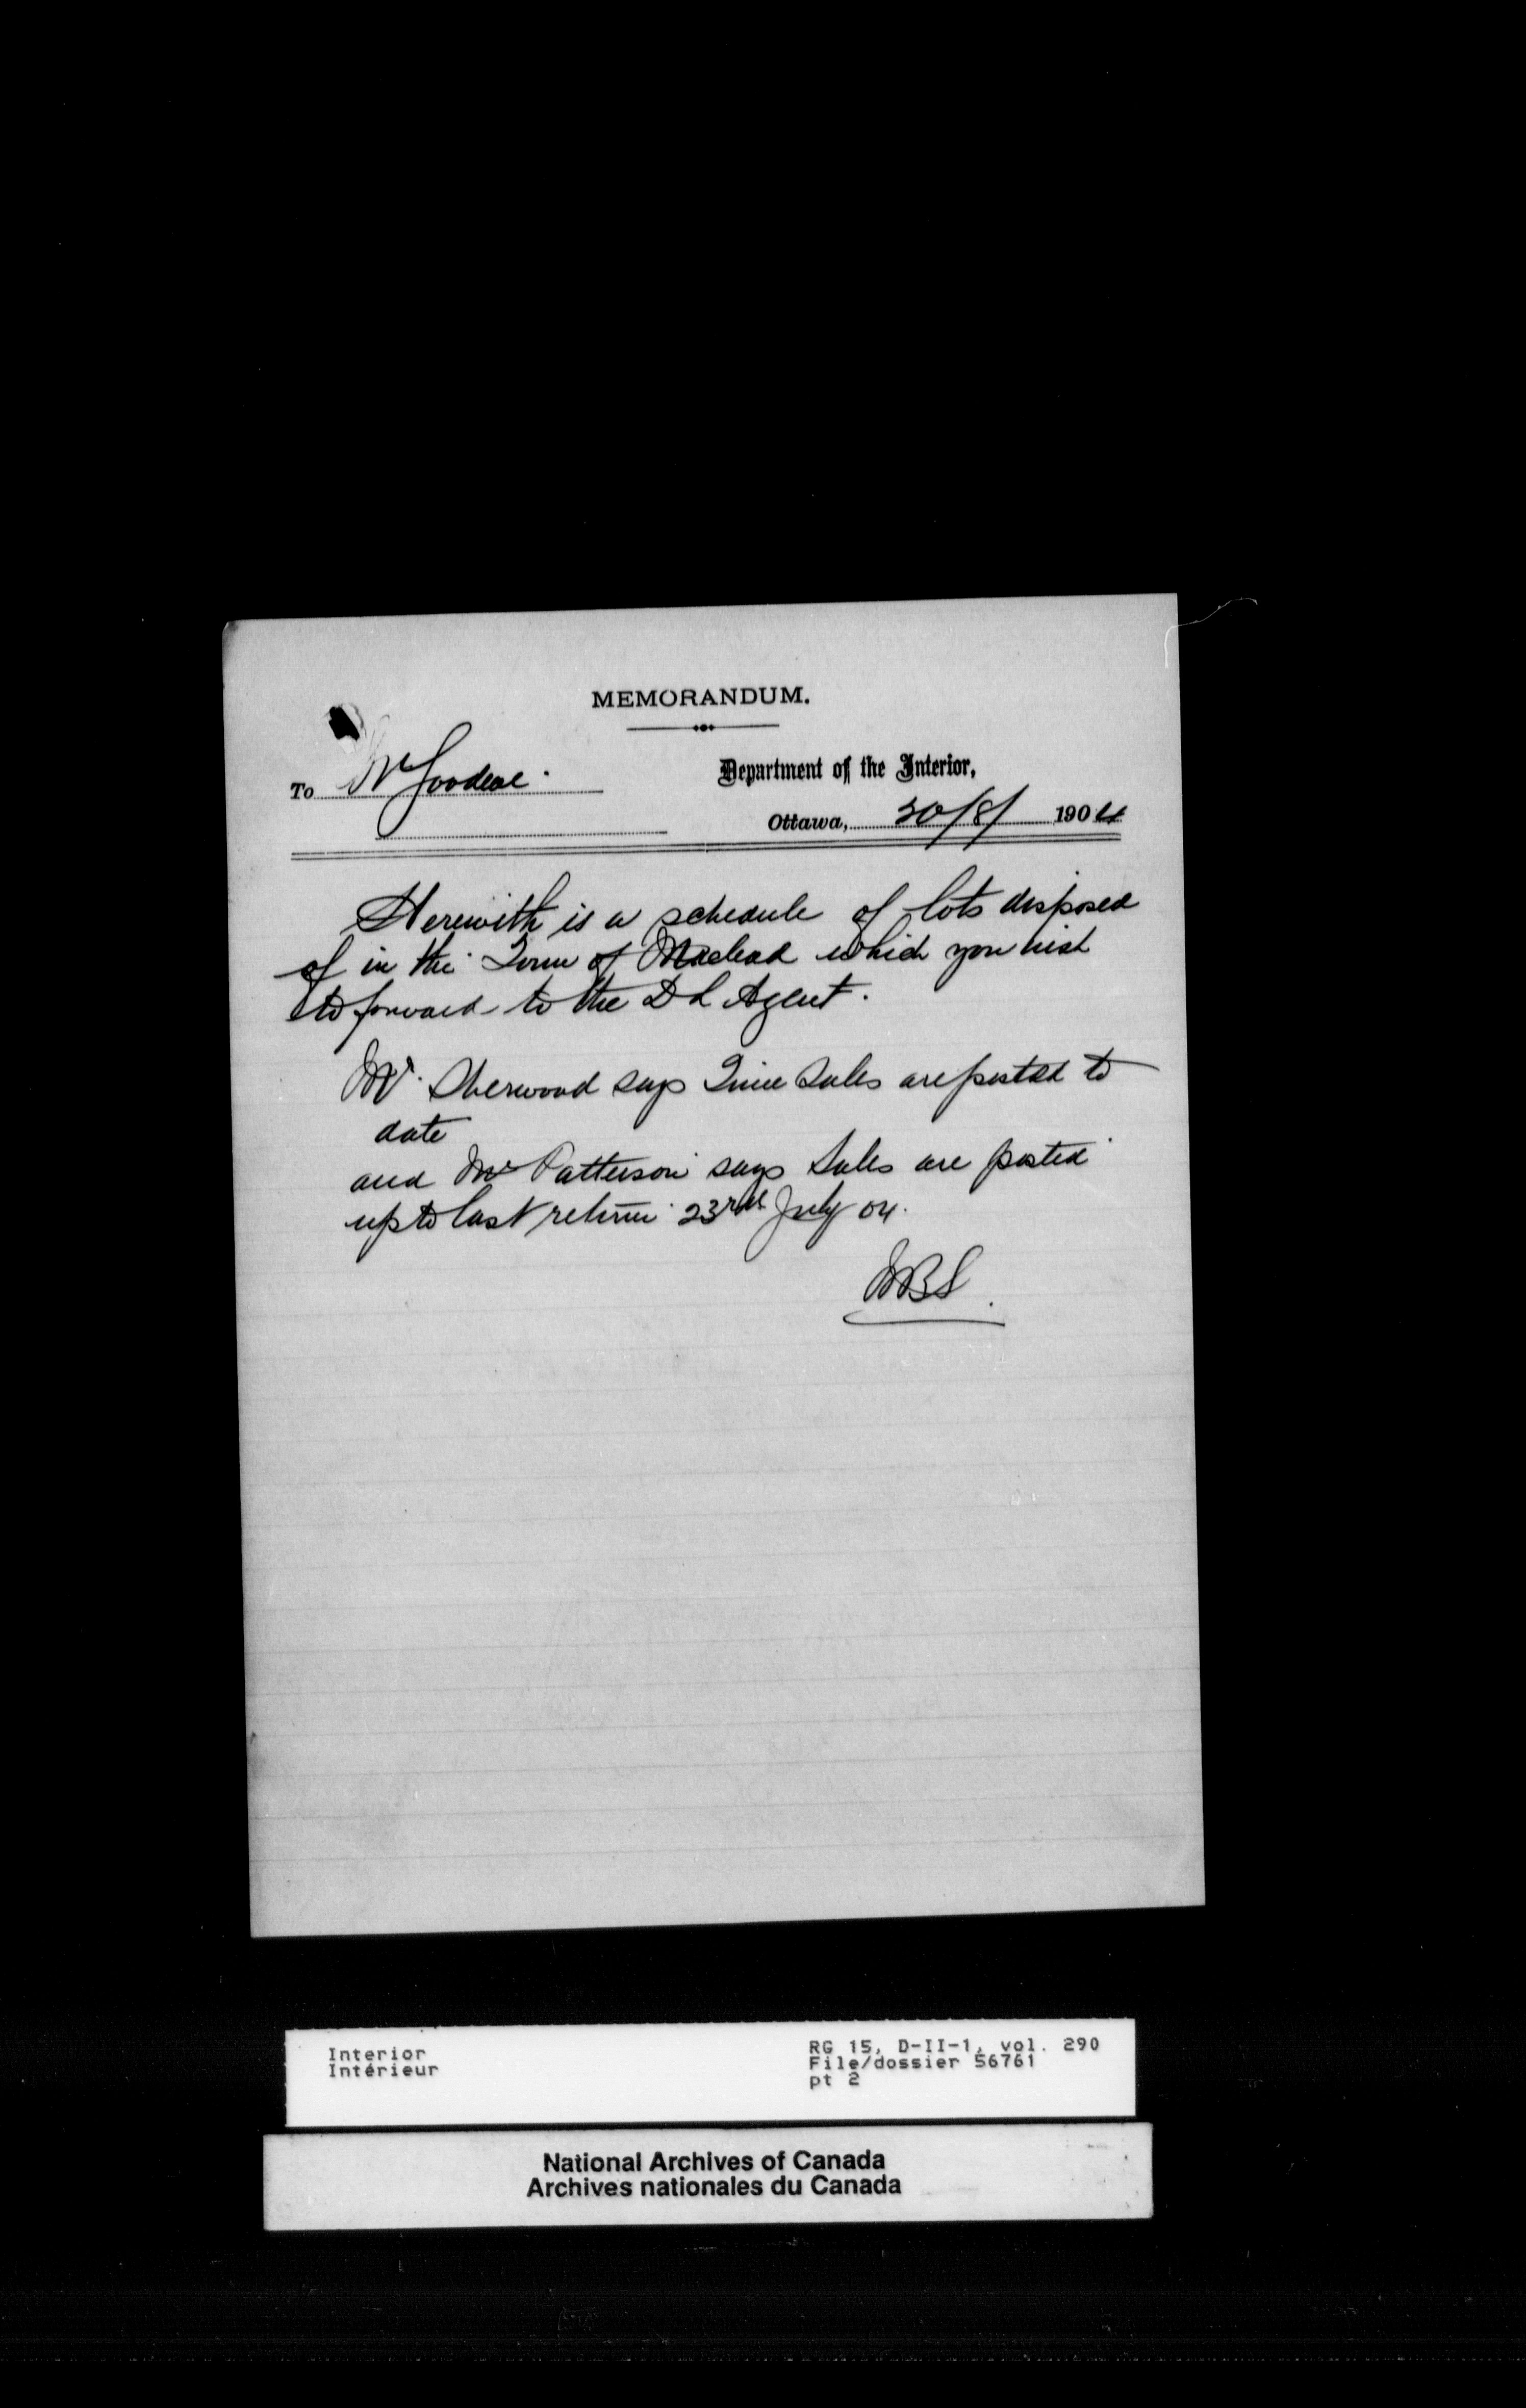 MEMORANDUM.
To Mr Goodeve.
Department of the Interior,
Ottawa, 30/8/ 1904
Herewith is a schedule of lots disposed
of in the Town of Macleod which you wish
to forward to the D L Agent.
Mr. Sherwood says Time Sales are posted to
date
and Mr Patterson says Sales are posted
up to last return 23rd July 04.
Interior
Intérieur
RG 15, D-II-1, vol. 290
File/dossier 56761
pt 2
National Archives of Canada
Archives nationales du Canada